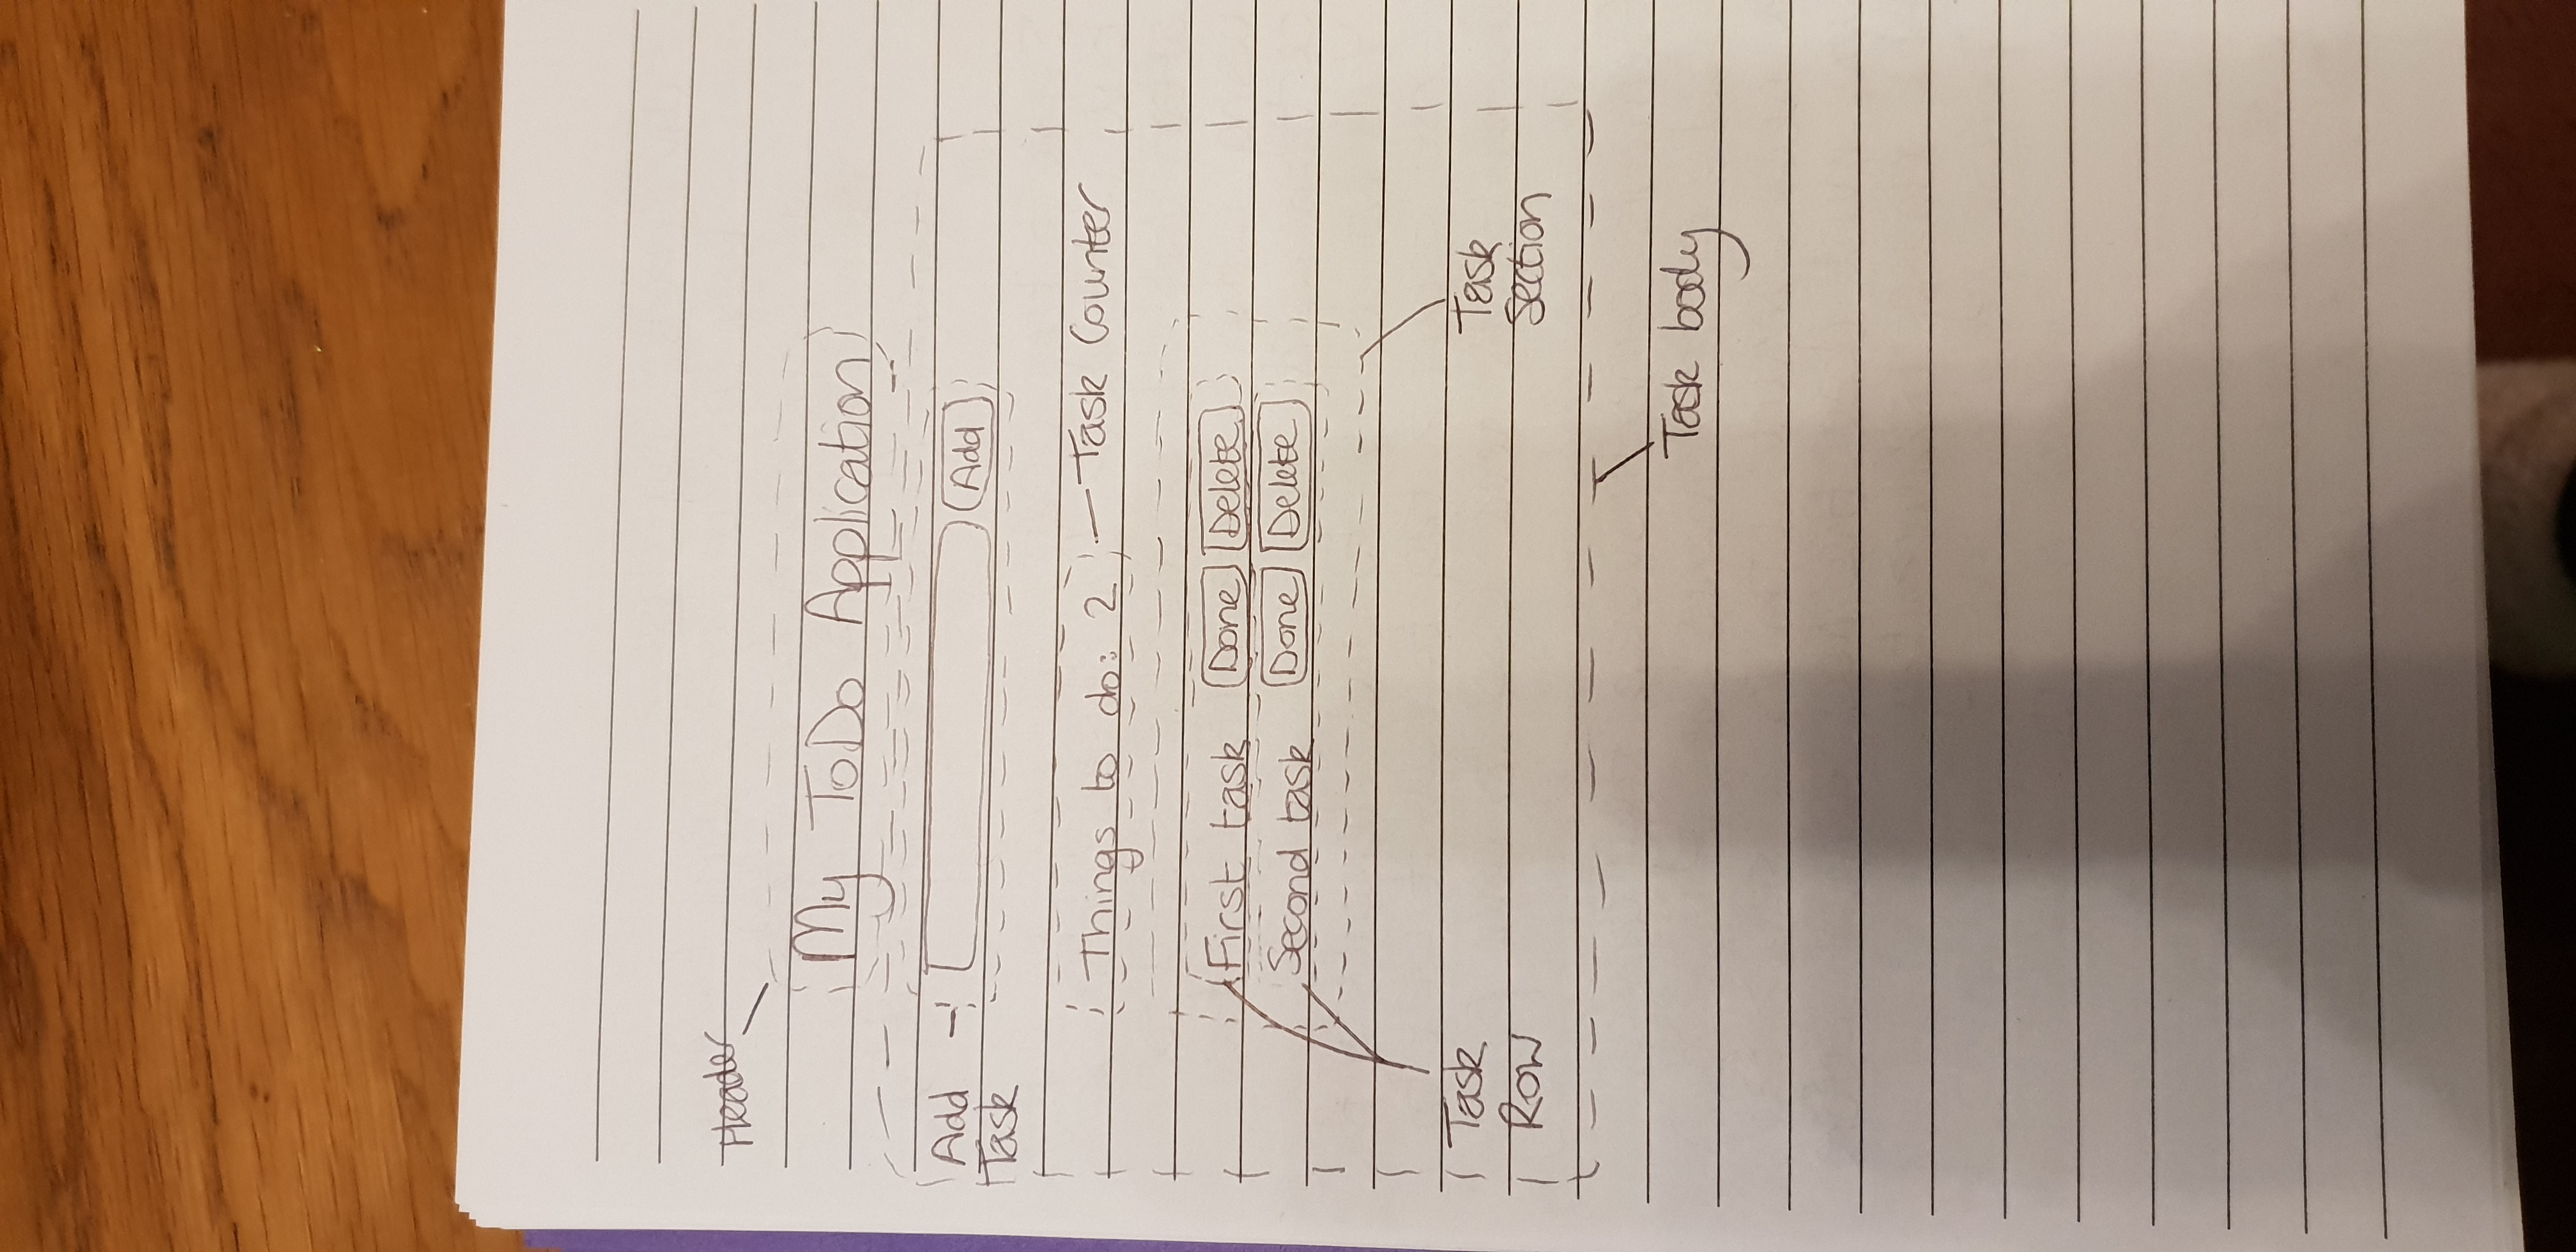 Header
My ToDo Application
Add Task
Add
Things to do: 2
Task Counter
First task Done Delete
Second task Done Delete
Task Row
Task Section
Task body